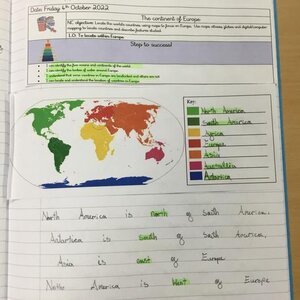 Date: Friday 6th October 2022
The continent of Europe
NC objectives: Locate the world's countries, using maps to focus on Europe. Use maps, atlases, globes and digital/computer mapping to locate countries and describe features studied.
L.O. To locate within Europe
Steps to success!
I can identify the five oceans and continents of the world
I can identify the bodies of water around Europe
I understand that some countries in Europe are landlocked and others are not
I can locate and understand the locations of countries in Europe
Key:
North America
South America
Africa
Europe
Asia
Australia
Antarctica
North America is north of South America.
Antartica is south of South America.
Asia is east of Europe
North America is west of Europe